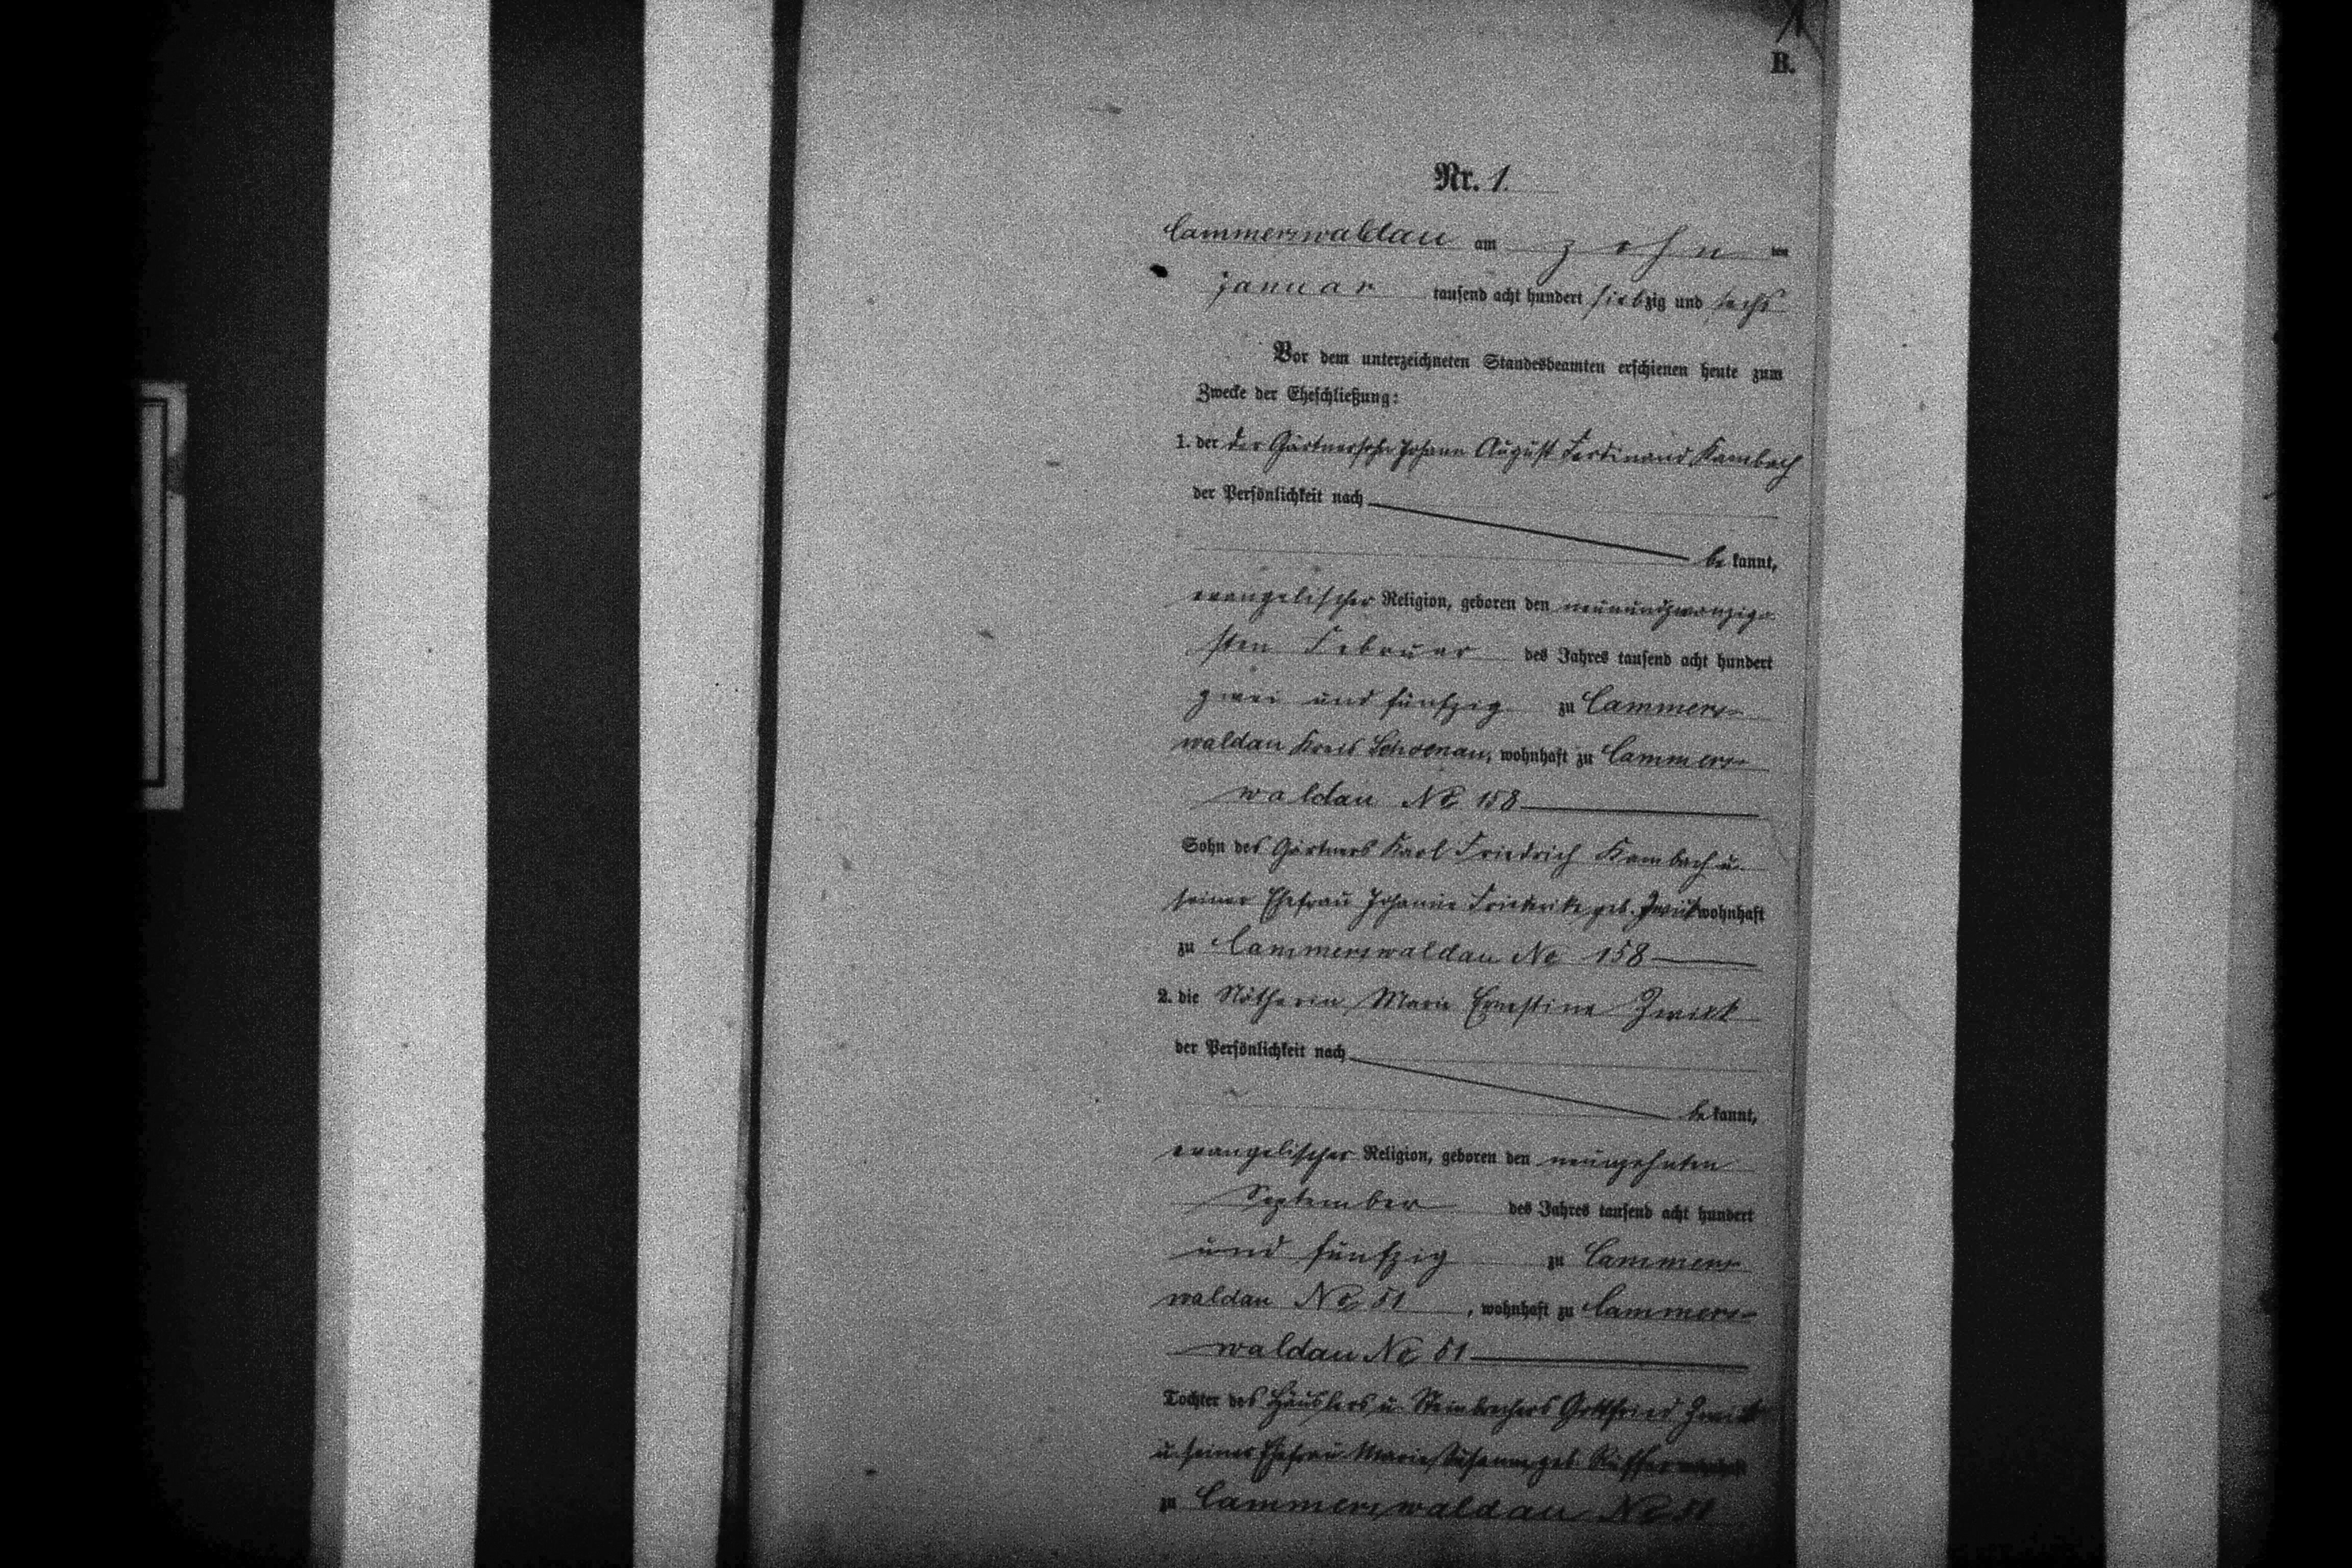 1
B.
Nr. 1.
Cammerswaldau am zehn ten
Januar tausend acht hundert siebzig und sechs
Vor dem unterzeichneten Standesbeamten erschienen heute zum
Zwecke der Eheschließung:
1. der der Gärtnersohn Johann August Ferdinand Kambach
der Persönlichkeit nach
be kannt,
evangelischer Religion, geboren den neunundzwanzig-
sten Februar des Jahres tausend acht hundert
zwei und fünfzig zu Cammers-
waldau Kreis Schoenau, wohnhaft zu Cammers-
waldau No 158
Sohn des Gärtners Karl Friedrich Kambach u.
seiner Ehefrau Johanne Friederike geb. wohnhaft
zu Cammerswaldau No 158
2. die Nätherin Marie Ernestine Zwikt
der Persönlichkeit nach
be kannt,
evangelischer Religion, geboren den neunzehnten
September des Jahres tausend acht hundert
und fünfzig zu Cammers-
waldau No 51, wohnhaft zu Cammers-
waldau No 51
Tochter des Häuslers u. Steinbrechers Gottfried
u. seiner Ehefrau Marie Susanne geb.
zu Cammerswaldau No 51